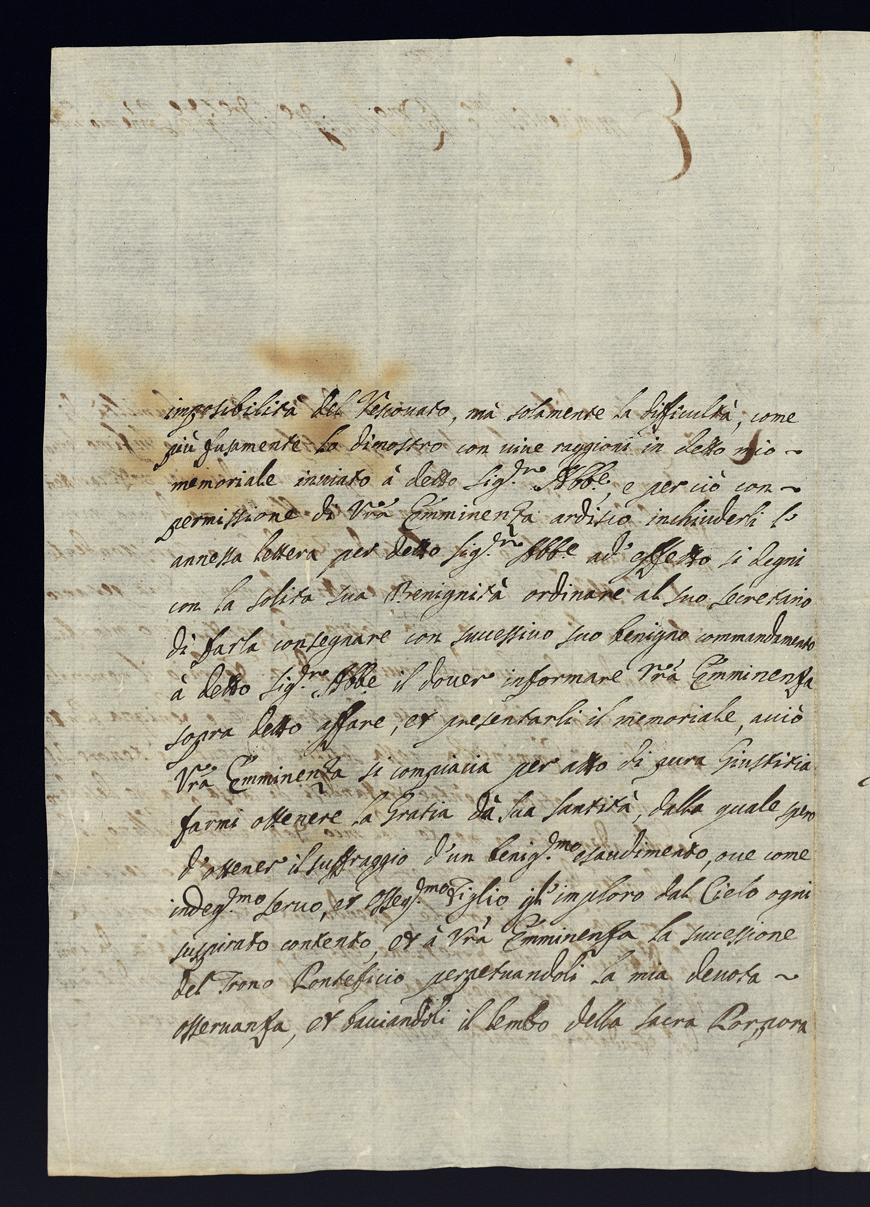 imposibilità del Vescouato, mà solamente la difficultà, come
più fusamente lo dimostro con uiue raggioni in detto mio ~
memoriale inuiato à detto Sig.re Abbe, e per ciò con ~
permissione di Vrã Emminenza ardisco inchiuderli l'
annessa lettera per detto Sig.re Abbe ad' effetto si degni
con la solita sua Benignità ordinare al suo secretario
di farla consegnare con successiuo suo benigno commandamento
à detto Sig.re Abbe il douer informare Vrã Emminenza
sopra detto affare, et presentarli il memoriale, acciò
Vrã Emminenza si compiacia per atto di pura Giustitia
farmi ottenere la Gratia dà Sua Santità, dalla quale spero
d'ottener il suffraggio d'un benig.mo esaudimento, oue come
indeg.mo seruo, et osseq.mo Figlio gl' imploro dal Cielo ogni
suspirato contento, et à Vrã Emminenza la successione
del Trono Ponteficio perpetuandoli la mia deuota ~
osseruanza, et bacciandoli il lembo della sacra Porpora